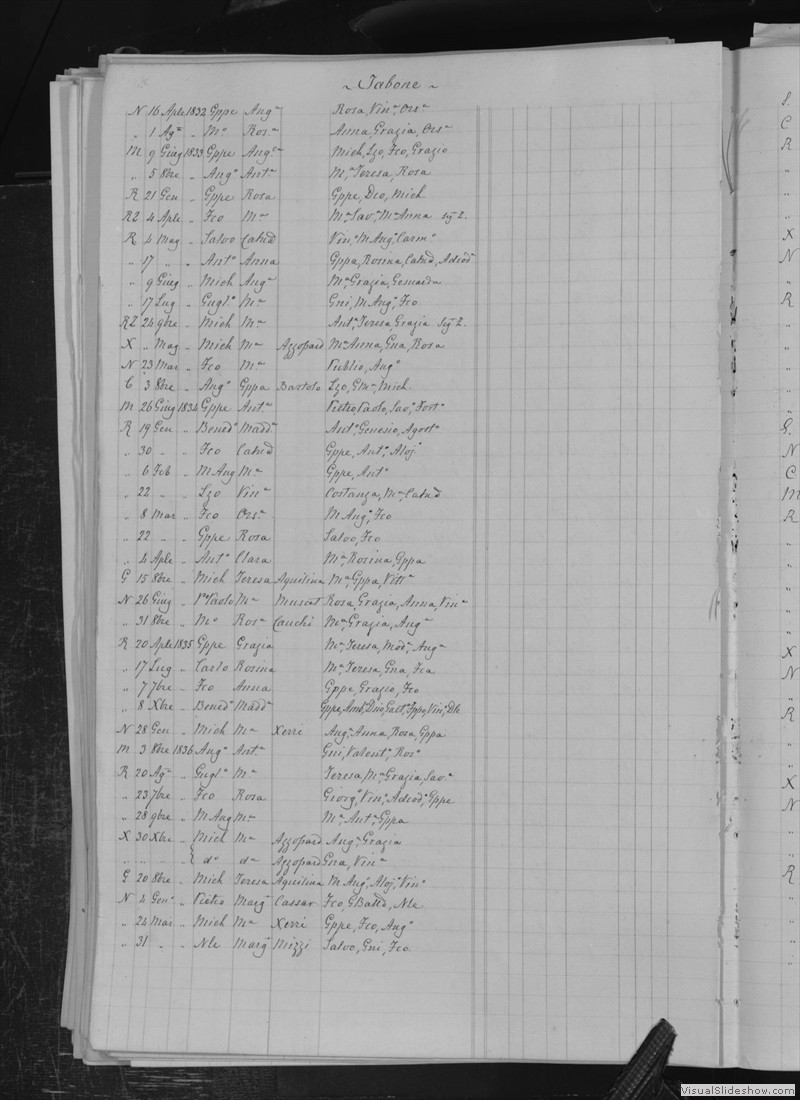 ~ Tabone ~
N 16 Aple 1832 Gppe Angª Rosa, Vinª, Orsª
„ 1 Agº „ Mº Rosª Anna, Grazia, Orsª
M 9 Giug 1833 Gppe Angcª Mich, Lzo, Fco, Grazio
„ 5 8bre „ Angº Antª Mª, Teresa, Rosa
R 21 Gen „ Gppe Rosa Gppe, Dco, Mich
RZ 4 Aple „ Fco Mª Mª Savª, Mª Anna sg 2.
R 4 Mag „ Salvo Catnd Vinº, M Angº, Carmº
„ 17 „ „ Antº Anna Gppa, Rosina, Catnd, Adeodº
„ 9 Giug „ Mich Angª Mª, Grazia, Genuaria
„ 17 Lug „ Guglº Mª Gni, M Angº, Fco
RZ 24 9bre „ Mich Mª Antª, Teresa, Grazia sg 2.
X „ Mag „ Mich Mª Azzopard Mª Anna, Gna, Rosa
N 23 Mar „ Fco Mª Publio, Angº
C 3 8bre „ Angº Gppa Bartolo Lzo, GMª, Mich
M 26 Giug 1834 Gppe Antª Pietro Paolo, Savº, Fortº
R 19 Gen „ Benedº Maddª Antº, Genesio, Agostº
„ 30 „ „ Fco Catnd Gppe, Antº, Alojº
„ 6 Feb „ M Ang Mª Gppe, Antº
„ 22 „ „ Lzo Vinª Costanza, Mª, Catnd
„ 8 Mar „ Fco Orsª M Angº, Fco
„ 22 „ „ Gppe Rosa Salvo, Fco
„ 4 Aple „ Antº Clara Mª, Rosina, Gppa
G 15 8bre „ Mich Teresa Aquilina Mª, Gppa, Vittª
N 26 Giug „ Pº Paolo Mª Muscat Rosa, Grazia, Anna, Vinª
„ 31 8bre „ Mº Rosª Cauchi Mª, Grazia, Angª
R 20 Aple 1835 Gppe Grazia Mª, Teresa, Modª, Angª
„ 17 Lug „ Carlo Rosina Mª, Teresa, Gna, Fca
„ 7 7bre „ Fco Anna Gppe, Grazio, Fco
„ 8 Xbre „ Benedº Maddª
N 28 Gen „ Mich Mª Xerri Angª, Anna, Rosa, Gppa
M 3 8bre 1836 Angº Antª Gni, Valentº, Rosº
R 20 Agº „ Guglº Mª Teresa, Mª, Grazia, Savª
„ 23 7bre „ Fco Rosa Giorgº, Vinº, Adeodº, Gppe
„ 28 9bre „ M Ang Mª Mª, Antª, Gppa
X 30 Xbre „ Mich Mª Azzopard Angª, Grazia
„ „ „ „ dº dª Azzopard Gna, Vinª
G 20 8bre „ Mich Teresa Aquilina M Angº, Alojº, Vinº
N 4 Genº „ Pietro Margª Cassar Fco, GBattª, Nle
„ 24 Mar „ Mich Mª Xerri Gppe, Fco, Angº
„ 31 „ „ Nle Margª Mizzi Salvo, Gni, Fco
S.
C
R
X
N
„
R
G.
N
C
M
R
X
N
„
R
X
N
R
VisualSlideshow.com